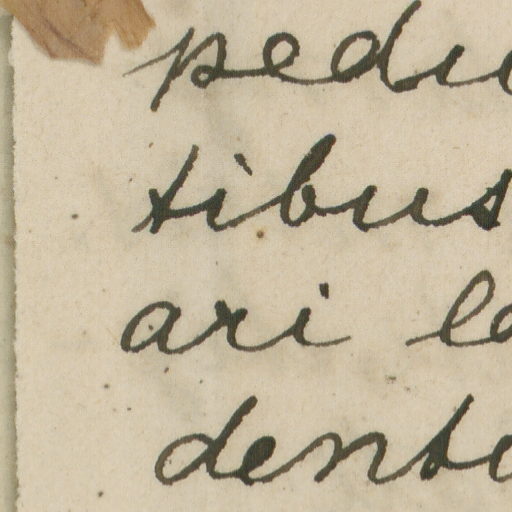 pedu
tibus
ari la
dente